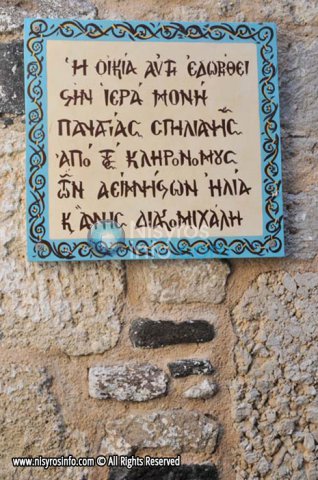 Ἡ ΟἸΚΊΑ ΑὐΤῊ ἘΔΩΡΉΘΕΙ
ϚΗΝ ἹΕΡΆ ΜΟΝΉ
ΠΑΝΑΓΊΑΣ ΣΠΗΛΙΑΝῆΣ
ἈΠΌ ΤΟΎΣ ΚΛΗΡΟΝΌΜΟΥΣ
ΤῶΝ ἈΕΙΜΝΉϚΩΝ ἨΛΊΑ
Κ ἌΝΝΗΣ ΔΙΑΚΟΜΙΧΆΛΗ
www.nisyrosinfo.com © All Rights Reserved